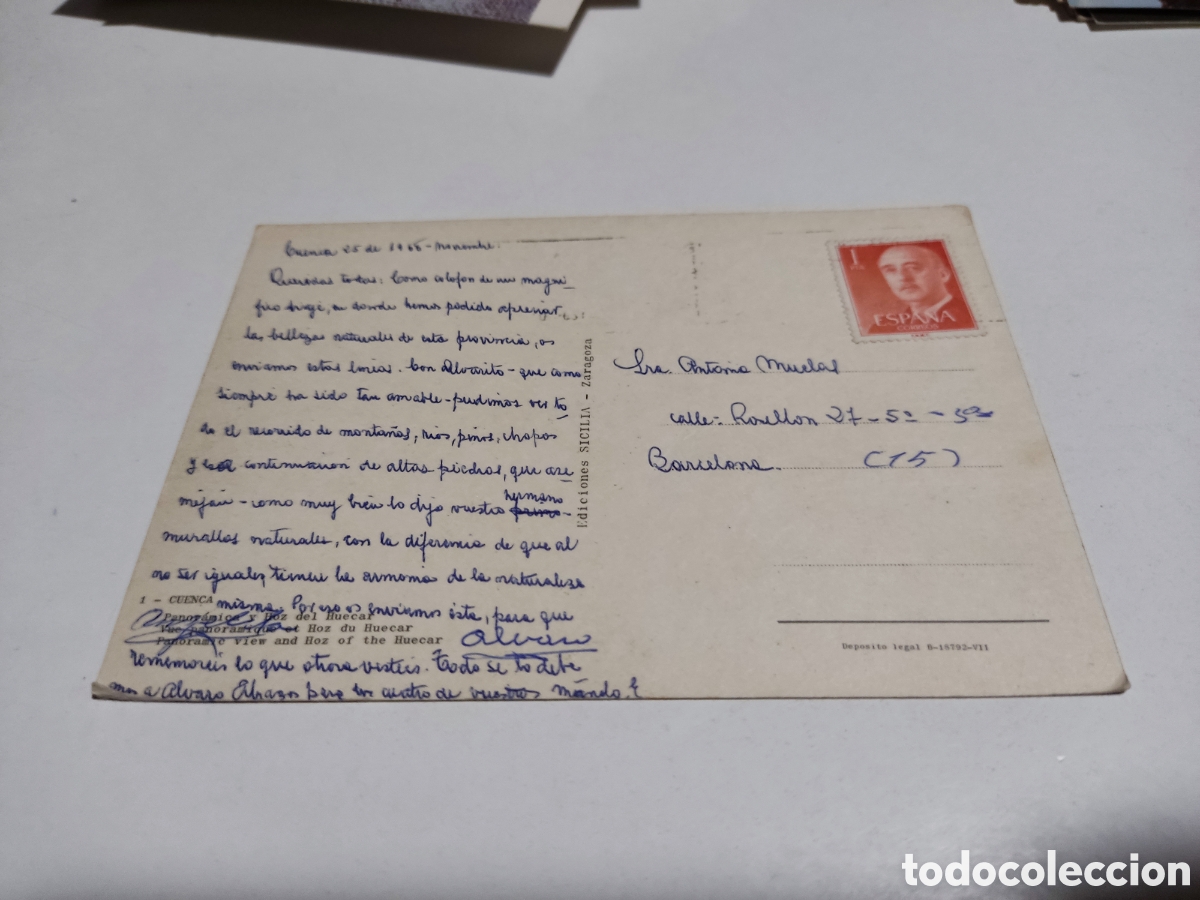 Cuenca 25 de 1966 - Noviembre.
Queridas todas: Como colofon de un magni
fico viaje, en donde hemos podido apreciar
las bellezas naturales de esta provincia, os
enviamos estas lineas. Con Alvarito - que como
siempre ha sido tan amable - pudimos ver to
do el recorrido de montañas, rios, pinos, chopos
y esa continuacion de altas piedras, que ase
mejan - como muy bien lo dijo vuestro hermano -
murallas naturales, con la diferencia de que al
no ser iguales tienen la armonia de la naturaleza
misma. Por eso os enviamos ésta, para que
Alvaro
rememoreis lo que otrora visteis. Todo se lo debe
mos a Alvaro Abrazos para los cuatro de vuestros
1 - CUENCA
Panorámica y Hoz del Huecar
Vue panoramique et Hoz du Huecar
Panoramic view and Hoz of the Huecar
Ediciones SICILIA - Zaragoza
1
ESPAÑA
CORREOS
Sra. Antonia Muelas
calle: Rosellon 27 - 5º - 3ª
Barcelona. (15)
Deposito legal B-18792-VII
todocoleccion